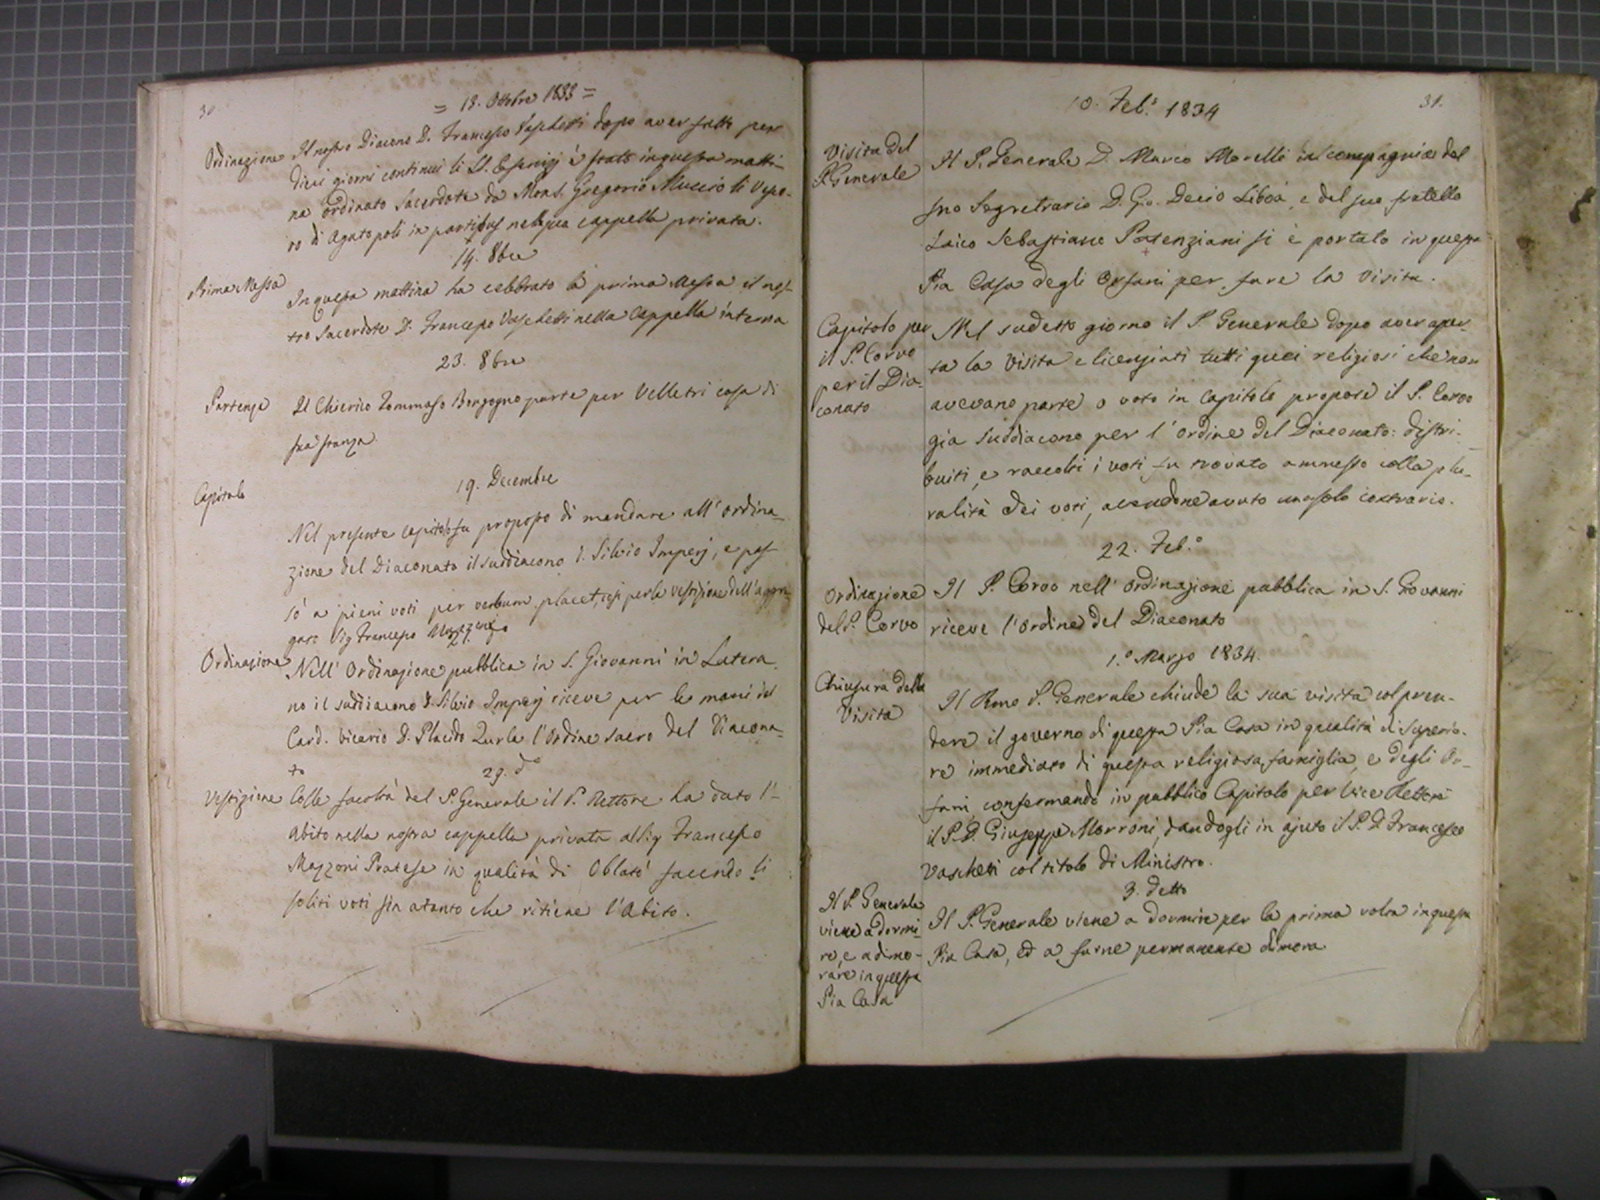 30
= 18. Ottobre 1833 =
Ordinazione
Il nostro Diacono D. Francesco Vaschetti dopo aver fatto per
dieci giorni continui li SS. Esercizj è stato in questa matti-
na ordinato Sacerdote da Mons. Gregorio Muccioli Vesco-
vo di Agatopoli in partibus nella sua cappella privata.
14. 8bre
Prima Messa
In questa mattina ha celebrato la prima Messa il nos-
tro Sacerdote D. Francesco Vaschetti nella Cappella interna
23. 8bre
Partenza
Il Chierico Tommaso Borgogno parte per Velletri casa di
sua stanza
19. Decembre
Capitolo
Nel presente capitolo fu proposto di mandare all'ordina-
zione del Diaconato il suddiacono D. Silvio Imperj, e pas-
sò a pieni voti per verbum placet, così per la vestizione dell'aggre-
gato Sig Francesco Mazzoni
21.
Ordinazione
Nell'Ordinazione pubblica in S. Giovanni in Latera-
no il suddiacono D. Silvio Imperj riceve per le mani del
Card. Vicario D. Placido Zurla l'Ordine sacro del Diacona-
to
29. do
Vestizione
Colle facoltà del P. Generale il P. Rettore ha dato l'
Abito nella nostra cappella privata al Sig Francesco
Mazzoni Pratese in qualità di Oblato facendo li
soliti voti sin a tanto che ritiene l'Abito.
31.
10. Feb.o 1834
Visita del
P. Generale
Il P. Generale D. Marco Morelli in compagnia del
suo Segretario D. Gio. Decio Liboà, e del suo fratello
Laico Sebastiano Potenziani si è portato in questa
Pia Casa degli Orfani per fare la Visita.
Capitolo per
il P. Corvo
per il Dia-
conato
Nel sudetto giorno il P. Generale dopo aver aper-
ta la Visita e licenziati tutti quei religiosi che non
avevano parte o voto in Capitolo propose il P. Corvo
gia Suddiacono per l'ordine del Diaconato: distri-
buiti, e raccolti i voti fu trovato ammesso colla plu-
ralità dei voti, avendone avuto un solo contrario.
22. Feb.o
Ordinazione
del P. Corvo
Il P. Corvo nell'Ordinazione pubblica in S. Giovanni
riceve l'Ordine del Diaconato
1.o Marzo 1834.
Chiusura della
Visita
Il Rmo P. Generale chiude la sua visita col pren-
dere il governo di questa Pia Casa in qualità di Superio-
re immediato di questa religiosa famiglia, e degli Or-
fani, confermando in pubblico Capitolo per Vice Rettore
il P. D. Giuseppe Morroni, dandogli in ajuto il P. D. Francesco
Vaschetti col titolo di Ministro.
3. detto
Il P. Generale
viene a dormi-
re, e a dimo-
rare in questa
Pia Casa
Il P. Generale viene a dormire per la prima volta in questa
Pia Casa, ed a farne permanente dimora